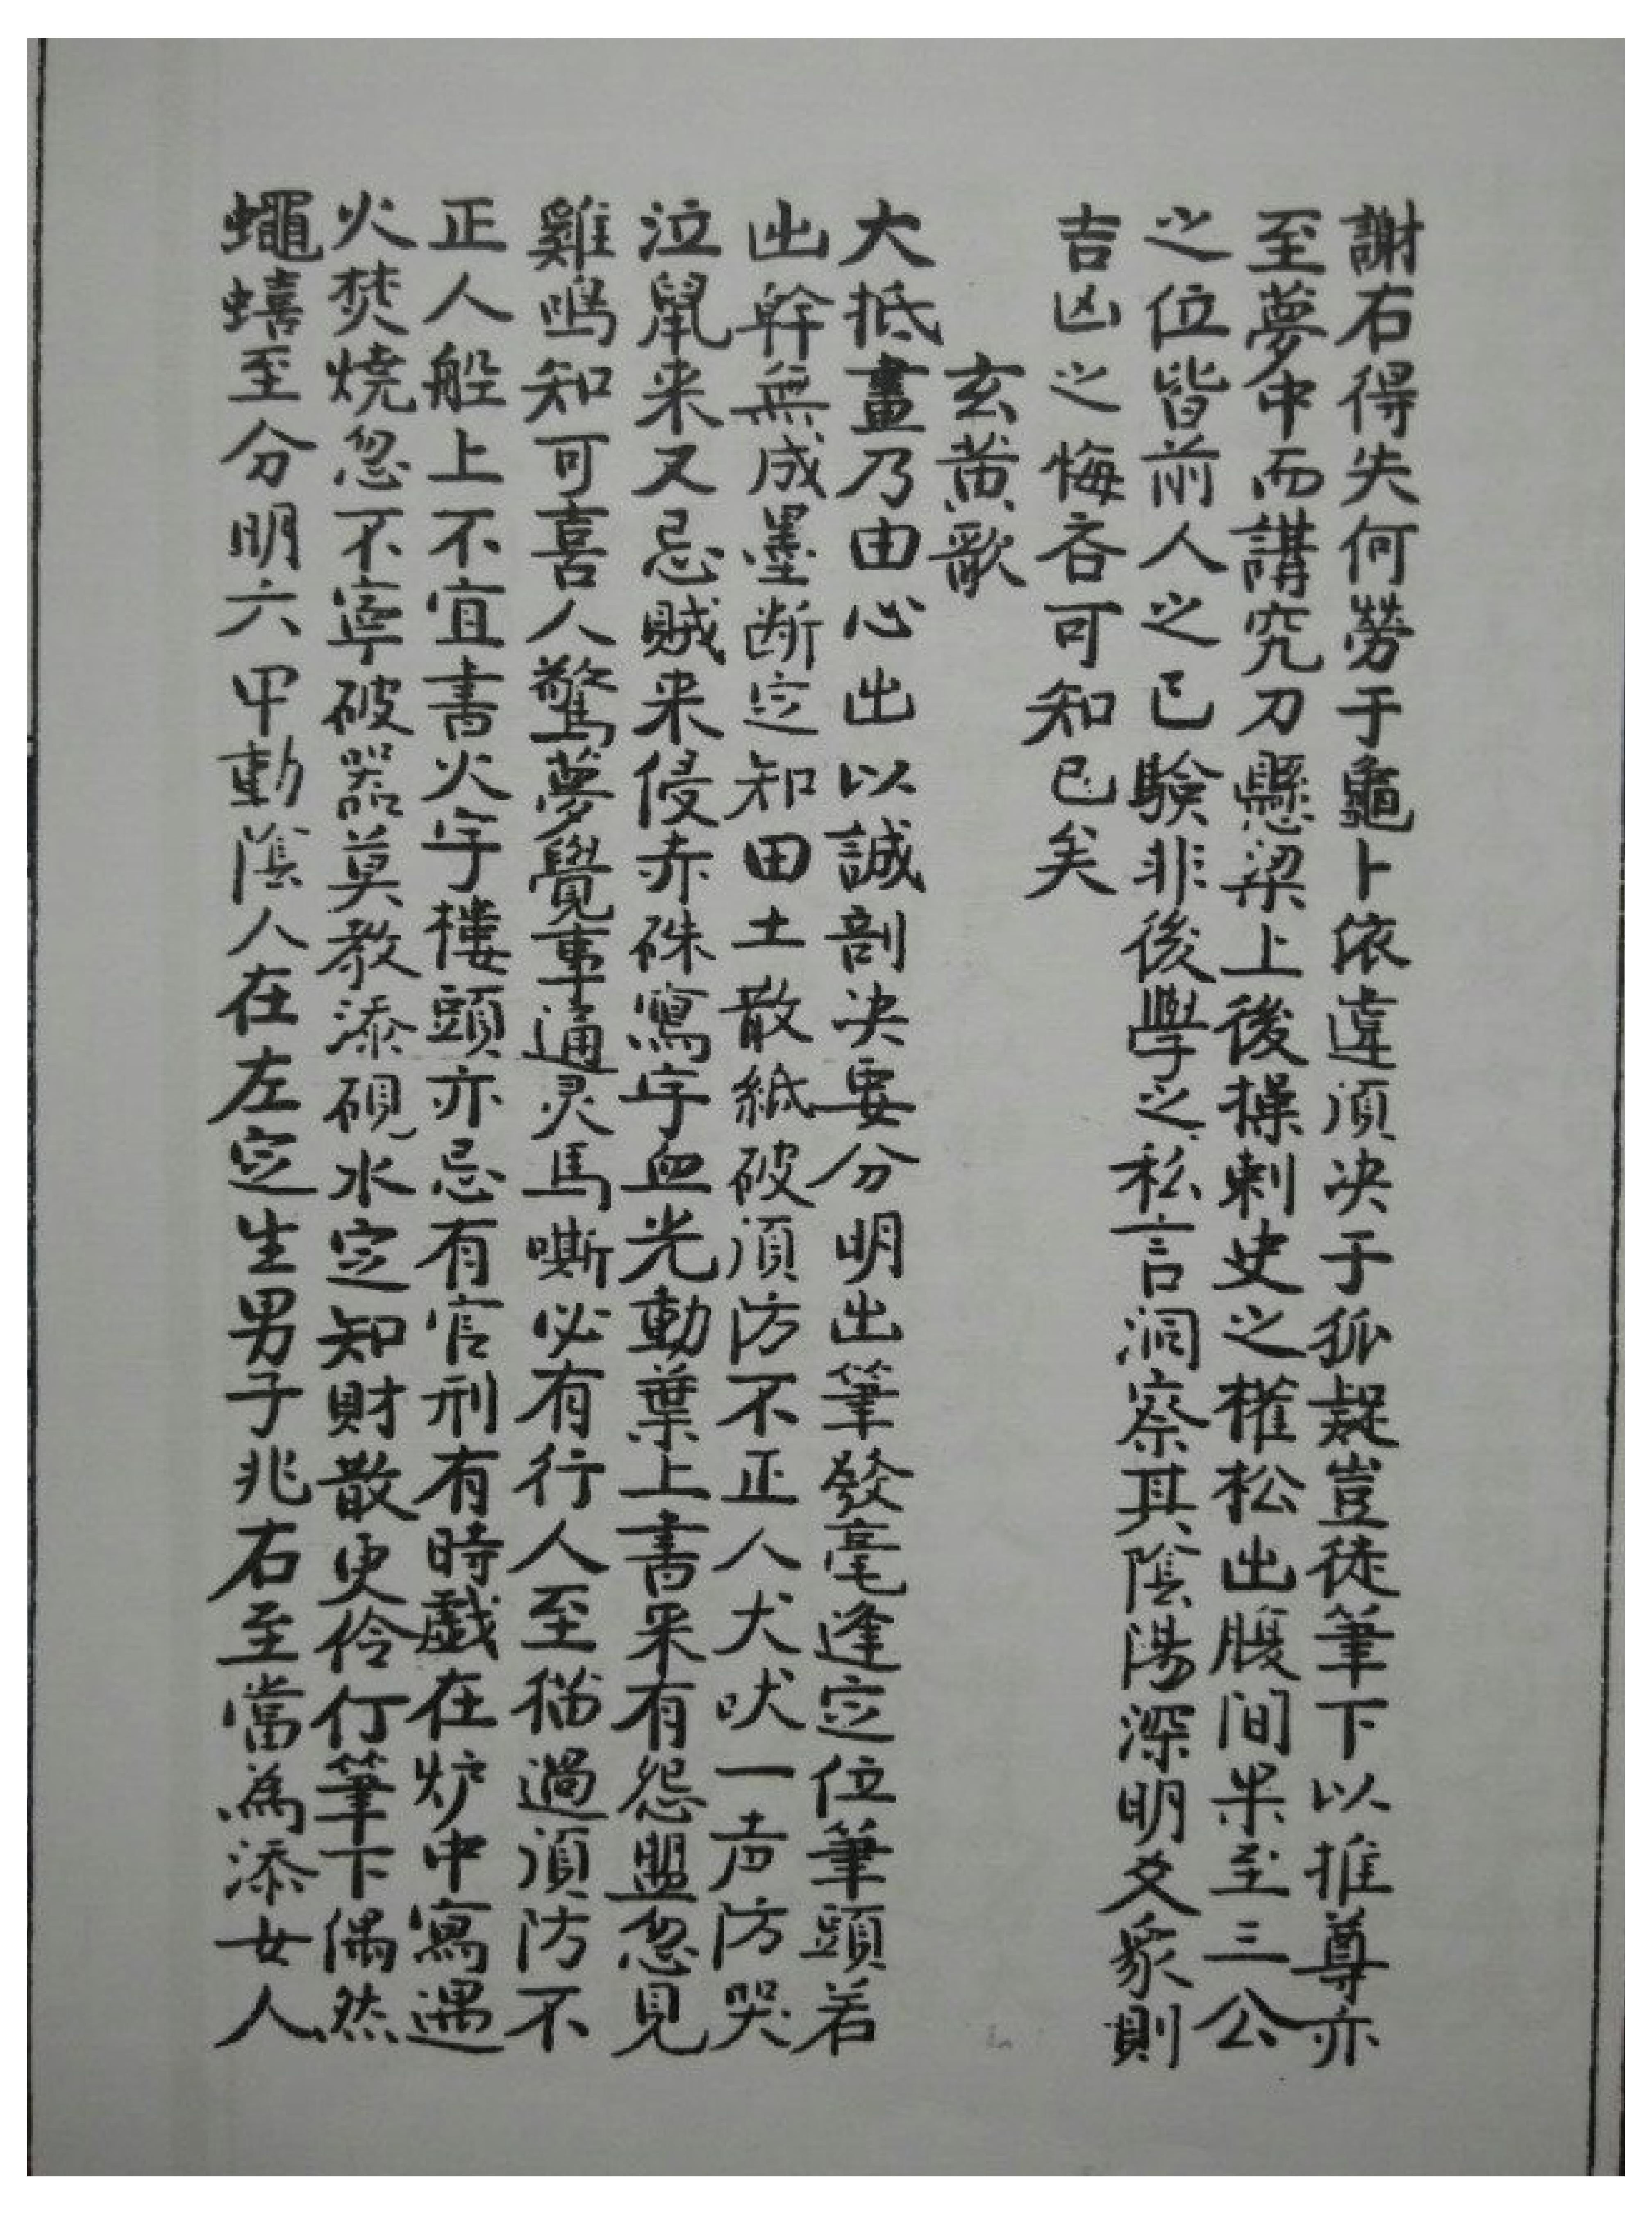 謝右得失何勞于龜卜依違須决于狐疑豈徒筆下以推尊亦
至夢中而講究刀懸梁上後操刺史之權松出腹间果至三公
之位皆前人之已験非後學之私言洞察其陰陽深明爻象則
吉凶之悔吝可知已矣
玄黄歌
大抵畫乃由心出以誠剖决要分明出筆發毫逢定位筆頭若
出幹無成墨断定知田土散紙破須防不正人犬吠一声防哭
泣鼠来又忌賊来侵赤硃寫字血光動葉上書来有怨盟忽見
雞鳴知可喜人驚夢覺事通灵馬嘶必有行人至猫過須防不
正人船上不宜書火字樓頭亦忌有官刑有時戲在炉中寫遇
火焚燒忽不寧破器莫教添硯水定知財散更伶仃筆下偶然
蠅蟢至分明六甲動陰人在左定生男子兆右至當為添女人